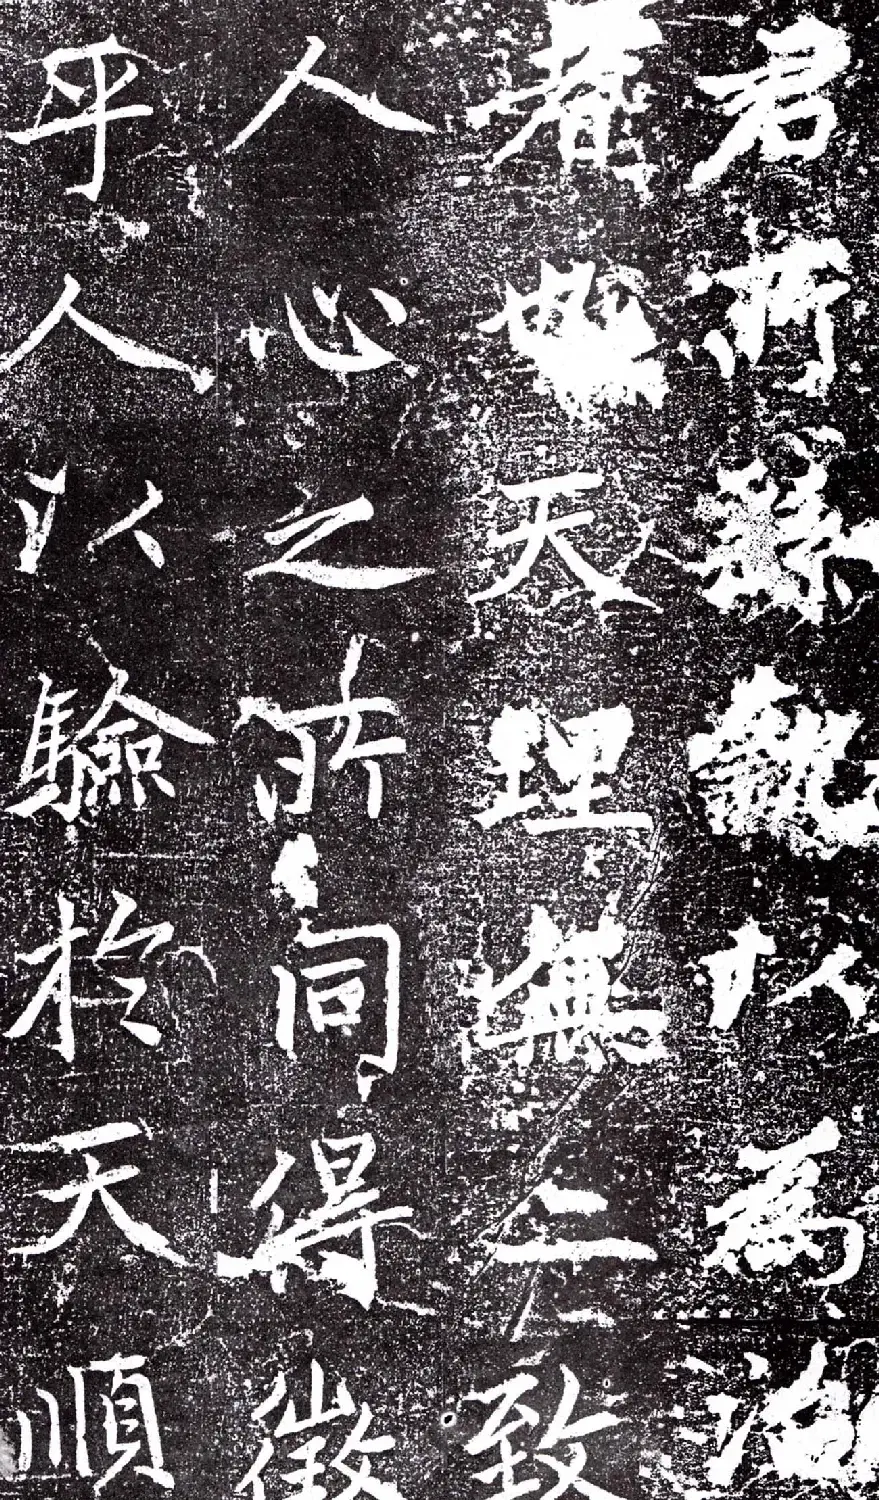 君所執以為治
者天理無二致
人心之所同得徵
乎人以驗於天順